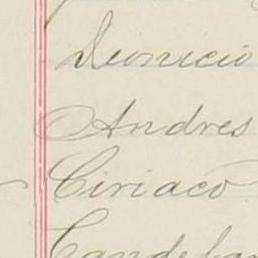 Dionicio
Andres
Ciriaco